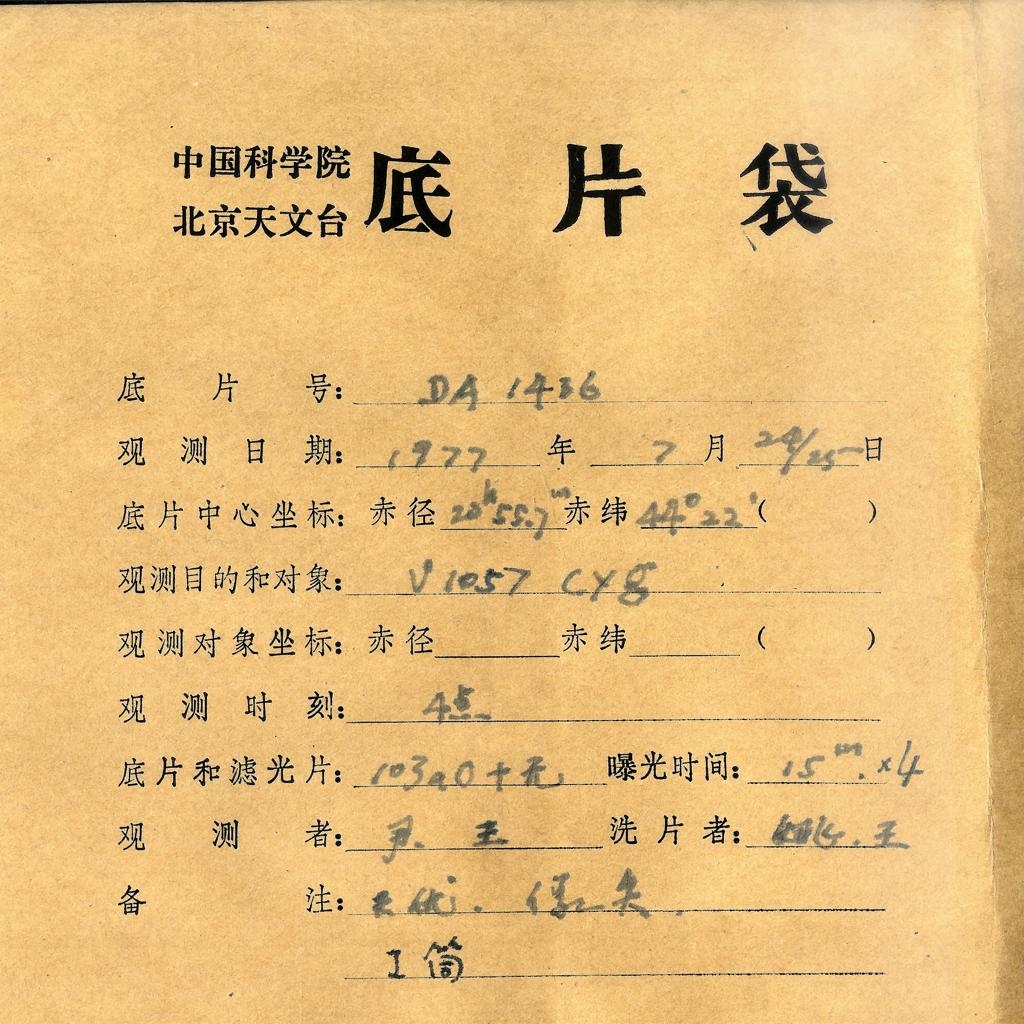 中国科学院
北京天文台
底片袋
底片号: DA 1436
观测日期: 1977 年 7 月 24/25 日
底片中心坐标: 赤径 20ʰ55.7ᵐ 赤纬 44°22′ ( )
观测目的和对象: V1057 Cyg
观测对象坐标: 赤径 赤纬 ( )
观测时刻: 4点
底片和滤光片: 103aO+无 曝光时间: 15ᵐ.×4
观测者: 尹. 王 洗片者: 王
备注:
I 筒